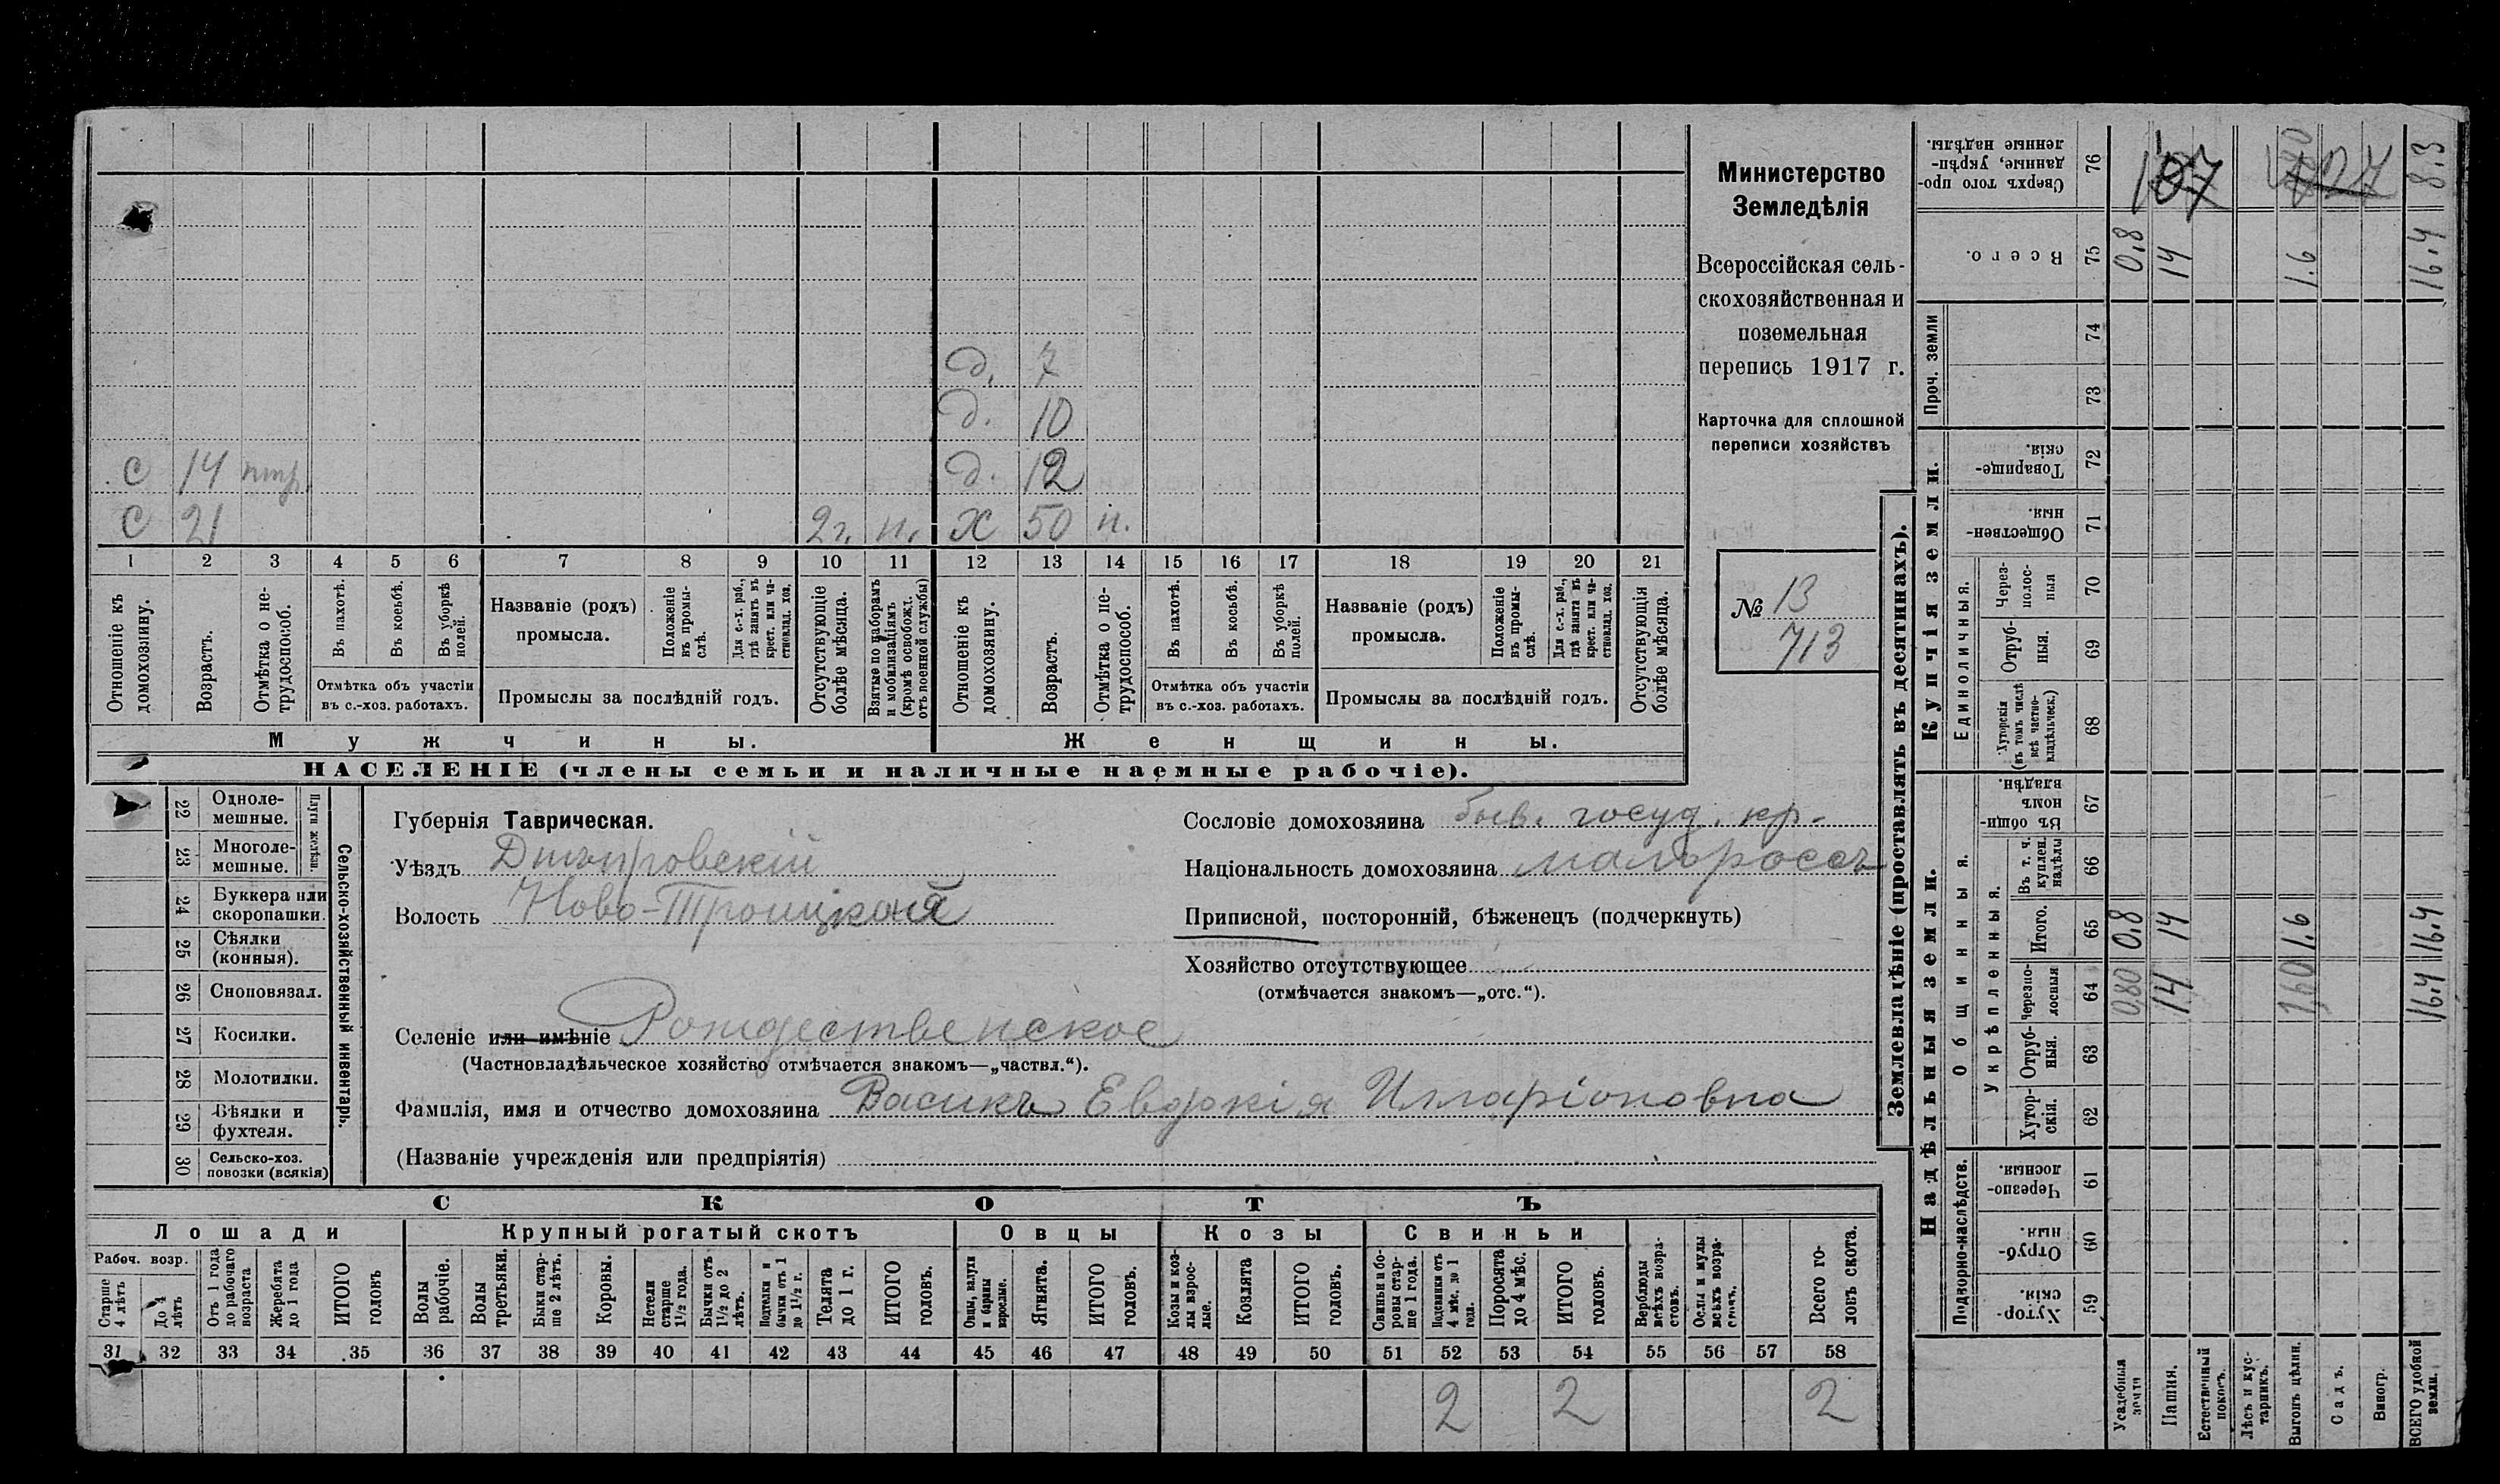 д. 7
д. 10
С 14 нтр. д. 12
С 21 2 г. н. Х 50 н.
1 2 3 4 5 6 7 8 9 10 11 12 13 14 15 16 17 18 19 20 21
Отношеніе къ домохозяину.
Возрастъ.
Отмѣтка о не-трудоспособ.
Въ пахотѣ.
Въ косьбѣ.
Въ уборкѣ полей.
Отмѣтка объ участіи
въ с.-хоз. работахъ.
Названіе (родъ)
промысла.
Положеніе въ промы-слѣ.
Для с.-х. раб., гдѣ занятъ въ крест. или ча-стновлад. хоз.
Промыслы за послѣдній годъ.
Отсутствующіе болѣе мѣсяца.
Взятые по наборамъ и мобилизаціямъ (кромѣ освобожд. отъ военной службы)
Отношеніе къ домохозяину.
Возрастъ.
Отмѣтка о не-трудоспособ.
Въ пахотѣ.
Въ косьбѣ.
Въ уборкѣ полей.
Отмѣтка объ участіи
въ с.-хоз. работахъ.
Названіе (родъ)
промысла.
Положеніе въ промы-слѣ.
Для с.-х. раб., гдѣ занята въ крест. или ча-стновлад. хоз.
Промыслы за послѣдній годъ.
Отсутствующія болѣе мѣсяца.
Мужчины.
Женщины.
НАСЕЛЕНІЕ (члены семьи и наличные наемные рабочіе).
Министерство
Земледѣлія
Всероссійская сель-
скохозяйственная и
поземельная
перепись 1917 г.
Карточка для сплошной
переписи хозяйствъ
№ 13
713
Сельско-хозяйственный инвентарь.
Плуги желѣзн.
22 Одноле-
мешные.
23 Многоле-
мешные.
24 Буккера или
скоропашки.
25 Сѣялки
(конныя).
26 Сноповязал.
27 Косилки.
28 Молотилки.
29 Вѣялки и
фухтеля.
30 Сельско-хоз.
повозки (всякія)
Губернія Таврическая.
Уѣздъ Днѣпровскій
Волость Ново-Троицкая
Сословіе домохозяина бывш. госуд. кр.
Національность домохозяина малороссъ
Приписной, посторонній, бѣженецъ (подчеркнуть)
Хозяйство отсутствующее
(отмѣчается знакомъ—„отс.“).
Селеніе или имѣніе Рождественское
(Частновладѣльческое хозяйство отмѣчается знакомъ—„частвл.“).
Фамилія, имя и отчество домохозяина Васикъ Евдокія Илларіоновна
(Названіе учрежденія или предпріятія)
СКОТЪ
Лошади
Крупный рогатый скотъ
Овцы
Козы
Свиньи
Рабоч. возр.
Старше 4 лѣтъ
До 4 лѣтъ
Отъ 1 года до рабочаго возраста
Жеребята до 1 года
ИТОГО головъ
Волы рабочіе.
Волы третьяки.
Быки стар-ше 2 лѣтъ.
Коровы.
Нетели старше 1½ года.
Бычки отъ 1½ до 2 лѣтъ.
Подтелки и бычки отъ 1 до 1½ г.
Телята до 1 г.
ИТОГО головъ.
Овцы, валухи и бараны взрослые.
Ягнята.
ИТОГО головъ.
Козы и коз-лы взрос-лые.
Козлята
ИТОГО головъ.
Свиньи и бо-ровы стар-ше 1 года.
Подсвинки отъ 4 мѣс. до 1 года.
Поросята до 4 мѣс.
ИТОГО головъ.
Верблюды всѣхъ возра-стовъ.
Ослы и мулы всѣхъ возра-стовъ.
Всего го-ловъ скота.
31 32 33 34 35 36 37 38 39 40 41 42 43 44 45 46 47 48 49 50 51 52 53 54 55 56 57 58
2 2 2
Землевладѣніе (проставлять въ десятинахъ).
Надѣльныя земли.
Купчія земли.
Проч. земли
Подворно-наслѣдств.
Общинныя.
Укрѣпленныя.
Единоличныя.
Хутор-скія. 59
Отруб-ныя. 60
Черезпо-лосныя. 61
Хутор-скія. 62
Отруб-ныя. 63
Черезпо-лосныя 64 0,80 14 1,60 16,4
Итого. 65 0,8 14 1,6 16,4
Въ т. ч. куплен. надѣлы 66
Въ общин-номъ владѣн. 67
Хуторскія (въ томъ числѣ всѣ частно-владѣльческ.) 68
Отруб-ныя. 69
Через-полос-ныя 70
Обществен-ныя. 71
Товарище-скія. 72
73
74
Всего. 75 0,8 14 1.6 16,4
Сверхъ того про-данные, укрѣп-ленные надѣлы. 76 8.3
Усадебныя земли
Пашня.
Естественный покосъ.
Лѣсъ и кус-тарникъ.
Выгонъ цѣлин.
Садъ.
Виногр.
ВСЕГО удобной земли.